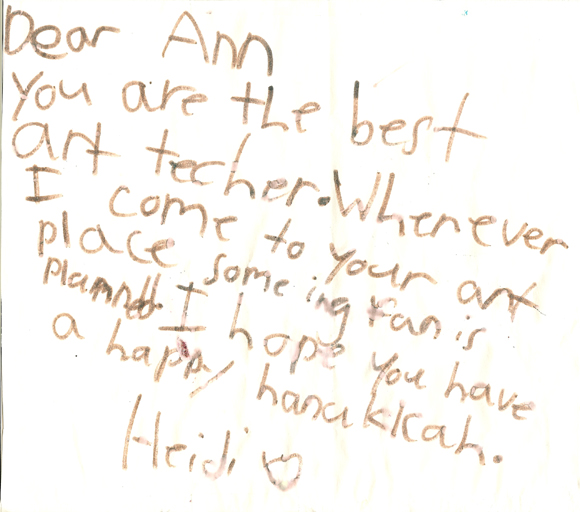 Dear Ann
You are the best
art techer. Whenever
I come to your art
place some ing fan is
planned I hope you have
a happy hanukkah.
Heidi